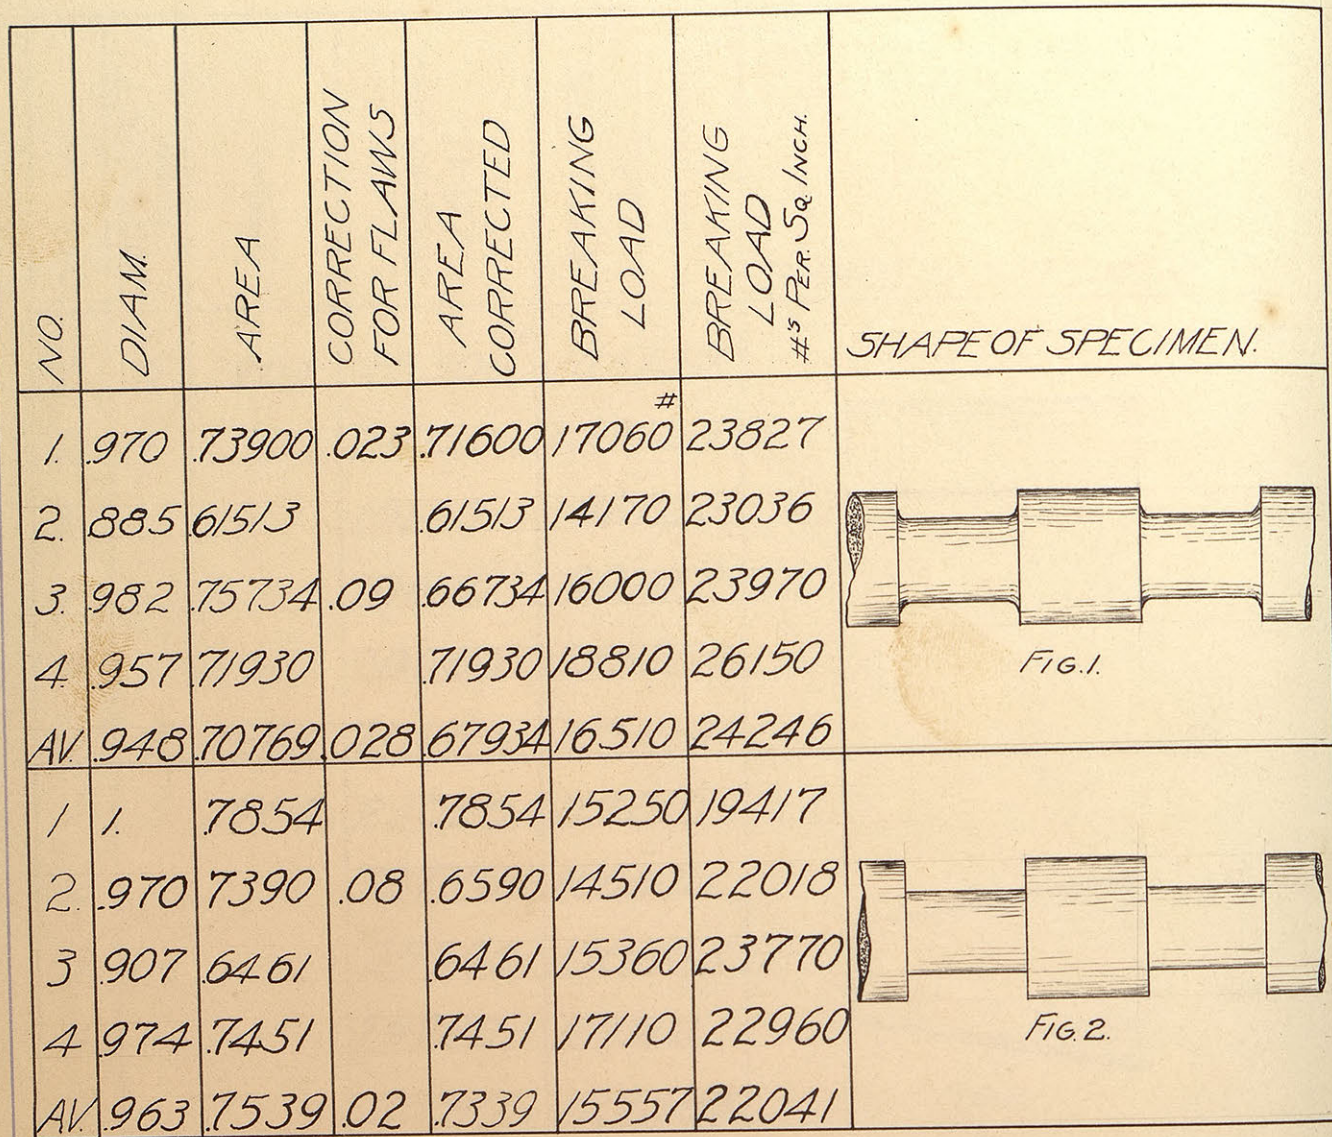 NO. DIAM. AREA CORRECTION FOR FLAWS AREA CORRECTED BREAKING LOAD BREAKING LOAD #s PER. SQ. INCH. SHAPE OF SPECIMEN.
1. .970 .73900 .023 .71600 17060# 23827
2. .885 .61513 .61513 14170 23036
3. .982 .75734 .09 .66734 16000 23970
4. .957 .71930 .71930 18810 26150
FIG. 1.
AV. .948 .70769 .028 .67934 16510 24246
1 1. .7854 .7854 15250 19417
2. .970 .7390 .08 .6590 14510 22018
3 .907 .6461 .6461 15360 23770
4 .974 .7451 .7451 17110 22960
FIG. 2.
AV. .963 .7539 .02 .7339 15557 22041